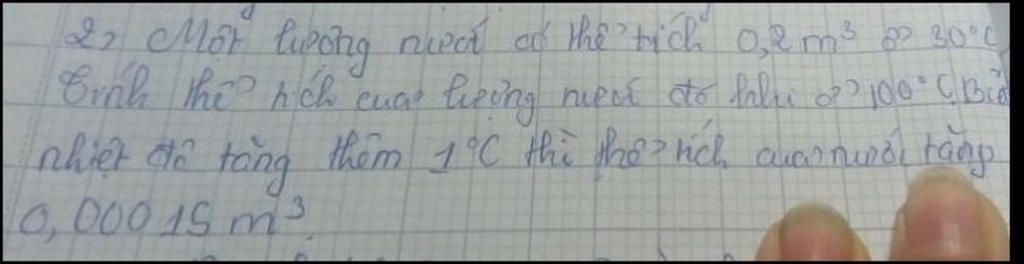 2, Một lượng nước có thể tích 0,2 m³ ở 30°C
Tính thể tích của lượng nước đó khi ở 100°C. Biết
nhiệt độ tăng thêm 1°C thì thể tích của nước tăng
0,00015 m³.